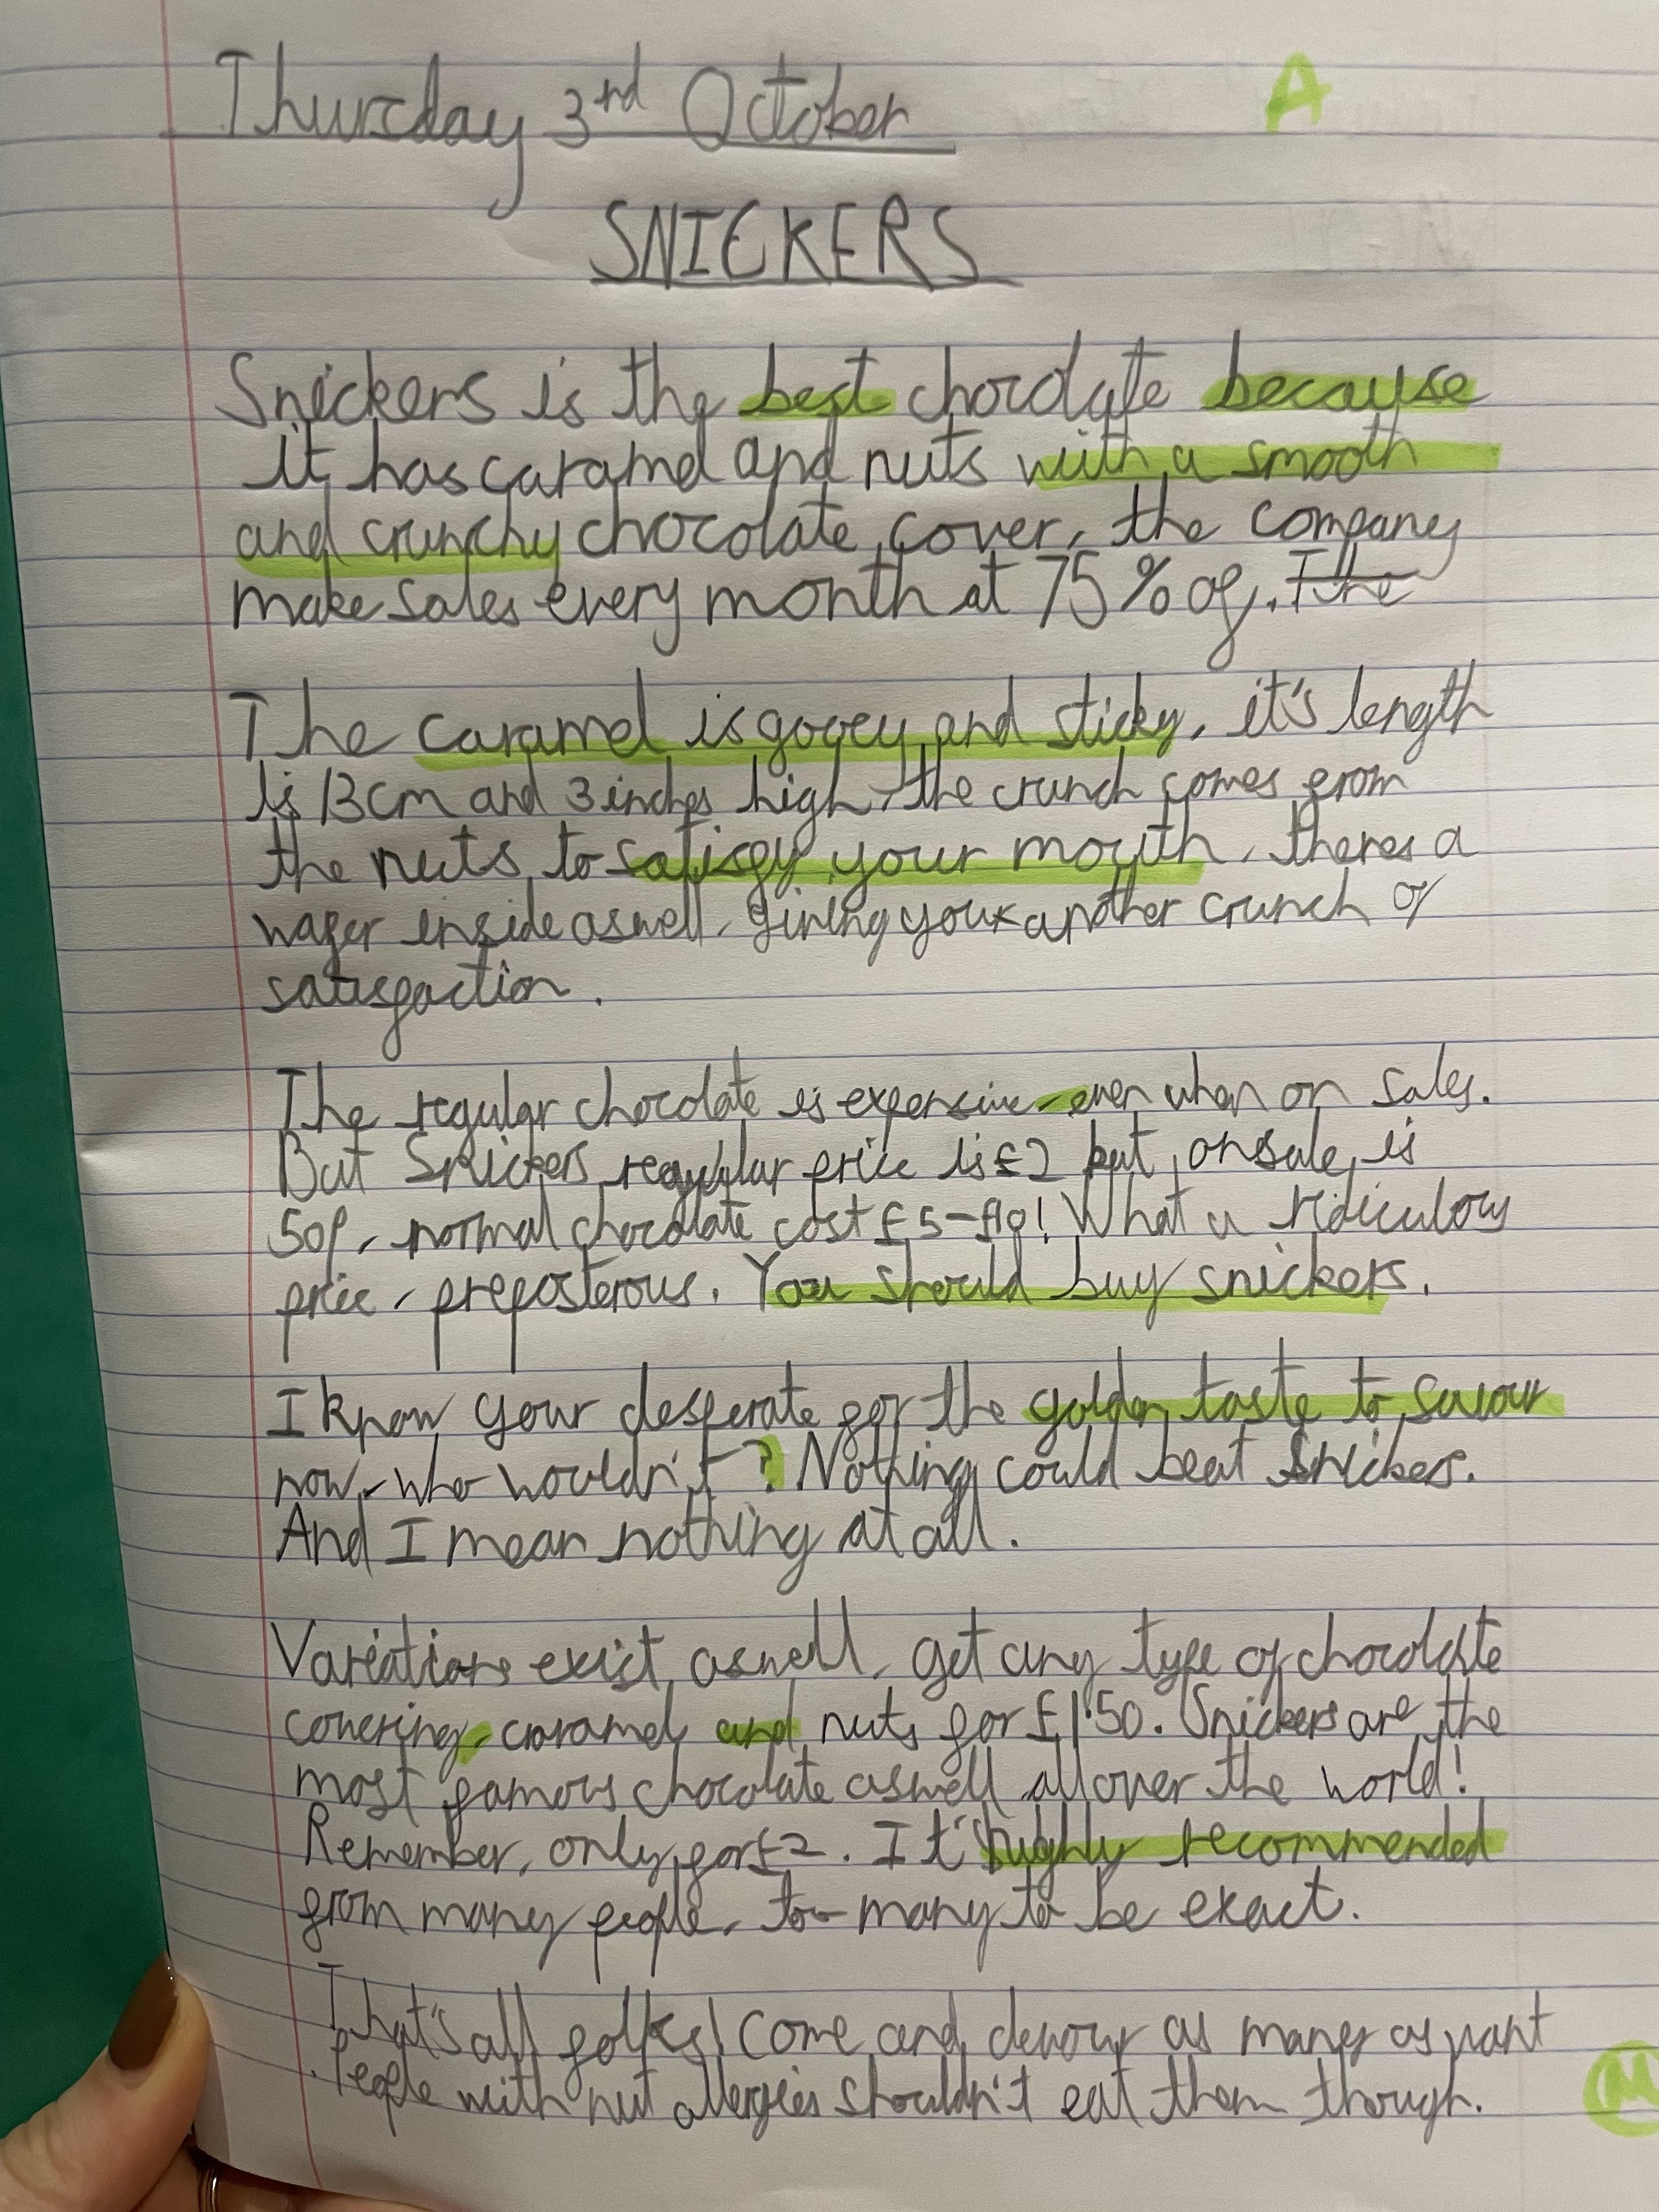 Thursday 3rd October
A
SNICKERS
Snickers is the best chocolate because
it has caramel and nuts with a smooth
and crunchy chocolate cover, the company
make sales every month at 75% of. The
The caramel is gooey and sticky, it's length
is 13cm and 3 inches high, the crunch comes from
the nuts to satisfy your mouth, theres a
wafer inside aswell, giving you another crunch of
satisfaction.
The regular chocolate is expensive, even when on sales.
But Snickers regular price is £2 but onsale is
50p, normal chocolate cost £5-£10! What a ridiculous
price, preposterous. You should buy snickers.
I know your desperate for the golden taste to savour
now, who wouldn't? Nothing could beat Snickers.
And I mean nothing at all.
Variations exist aswell, get any type of chocolate
covering, caramel and nuts for £1.50. Snickers are the
most famous chocolate aswell all over the world!
Remember, only for £2. It's highly recommended
from many people, too many to be exact.
That's all folks! Come and devour as many as want
People with nut allergies shouldn't eat them though.
M